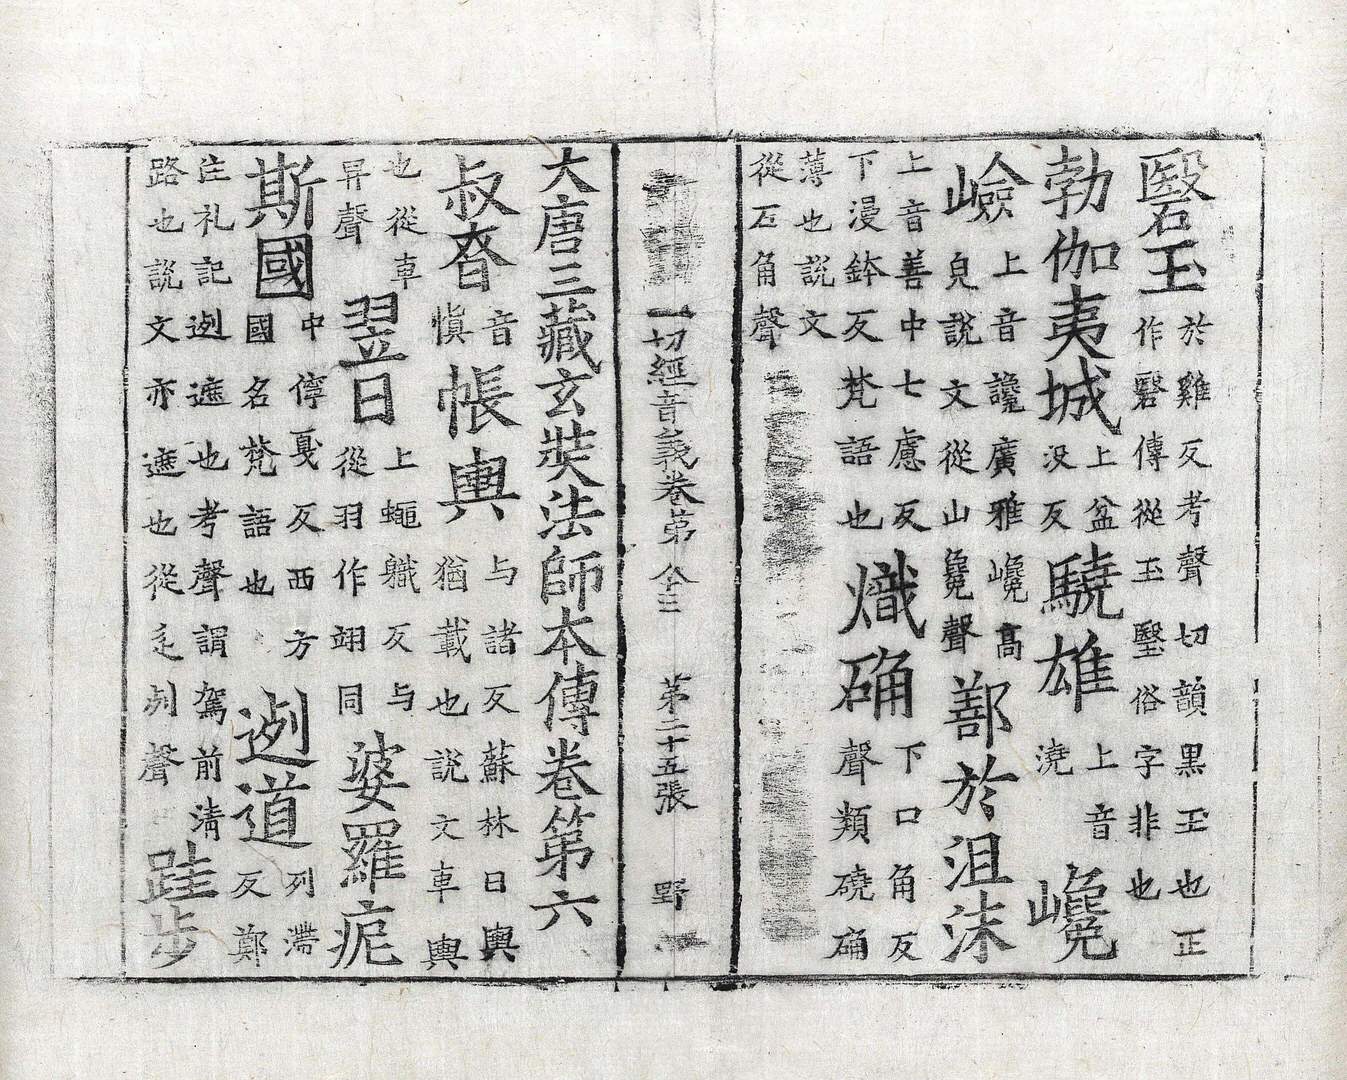 䃜玉於雞反考聲切韻黑玉也正作䃜傳從玉瑿俗字非也
勃伽夷城上盆反没驍雄上音澆巉
嶮上音讒廣雅巉高皃說文從山毚聲鄯於沮沫
上音善中七慮反下漫鉢反梵語也熾确下口角反聲類磽确
薄也說文從石角聲
一切經音義卷第八十三 第二十五張 野
大唐三藏玄奘法師本傳卷第六
叔眘音慎帳輿与諸反蘇林曰輿猶載也說文車輿
也從車舁聲翌日上蠅軄反与從羽作翊同婆羅痆
斯國中停戛反西方國名梵語也迾道列滯反鄭
注礼記迾遮也考聲謂駕前清路也說文亦遮也從辵列聲跬步